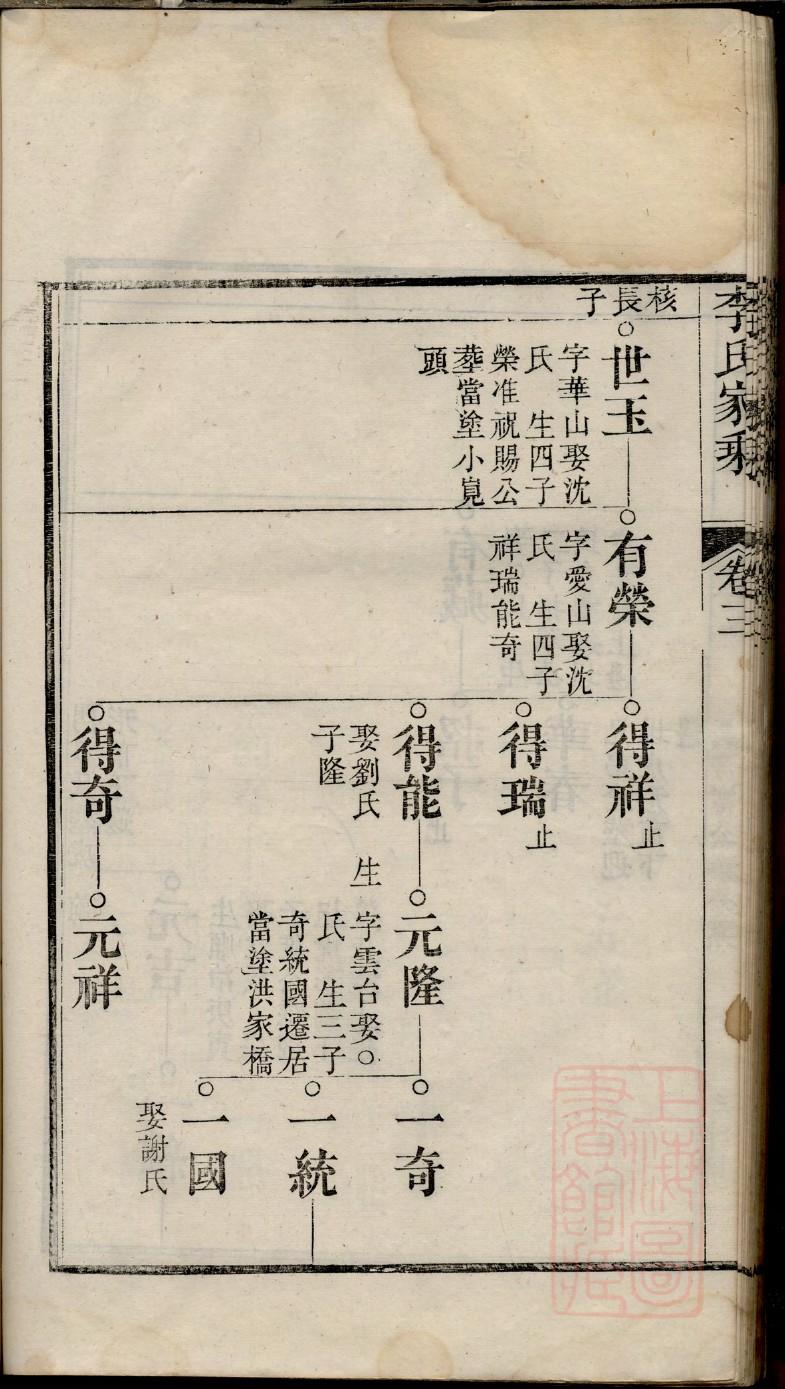 李氏家乘
卷三
核長子
世玉
字華山娶沈
氏 生四子
榮准祝賜公
塟當塗小覔
頭
有榮
字愛山娶沈
氏 生四子
祥瑞能奇
得祥
止
得瑞
止
得能
娶劉氏 生
子隆
得奇
元隆
字雲台娶○
氏 生三子
奇統國遷居
當塗洪家橋
元祥
一奇
一統
一國
娶謝氏
上海圖
書館藏